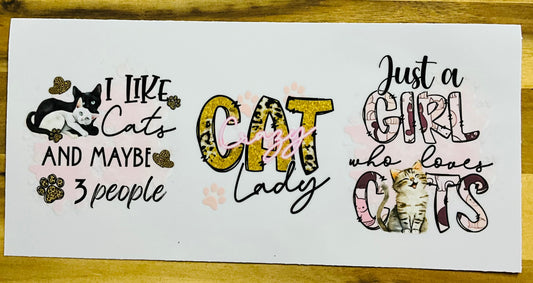 I LIKE
Cats
AND MAYBE
3 people
CAT
Crazy
Lady
Just a
GIRL
who loves
CATS